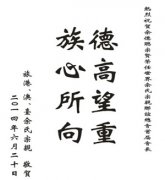 熱烈祝賀余德聰宗賢榮任世界余氏宗親聯誼總會首屆會長
德高望重
族心所向
旅港、澳、臺余氏宗親 敬賀
二〇一四年六月二十日